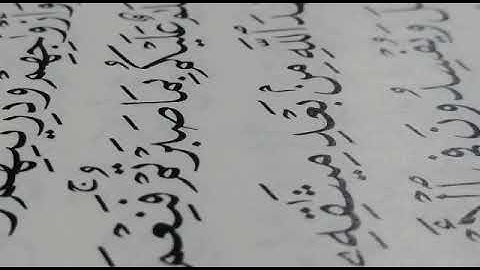 وَأَزْوَٰجِهِمْ وَذُرِّيَّٰتِهِمْ
عَلَيْكُم بِمَا صَبَرْتُمْ ۚ فَنِعْمَ
ٱللَّهِ مِنۢ بَعْدِ مِيثَٰقِهِۦ
وَيُفْسِدُونَ فِى